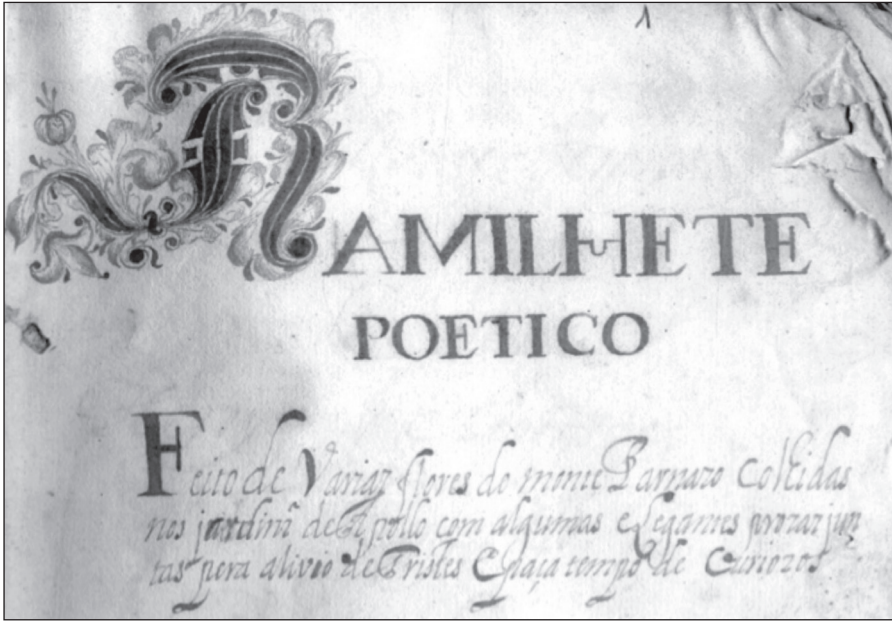 1
RAMILHETE
POETICO
Feito de Variaz flores do monte Parnazo Colhidas
nos jardinz de Apollo com algumas elegantes prozaz jun
tas pera alivio de Tristes E paça tempo de Curiozos